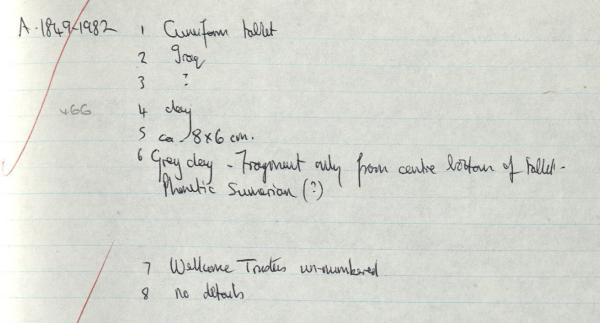 A.1849-1982 1 Cuneiform tablet
2 Iraq
3 ?
466 4 clay
5 ca. 8x6 cm.
6 Grey clay - Fragment only from centre bottom of tablet -
Phonetic Sumerian (?)
7 Wellcome Trustees un-numbered
8 no details